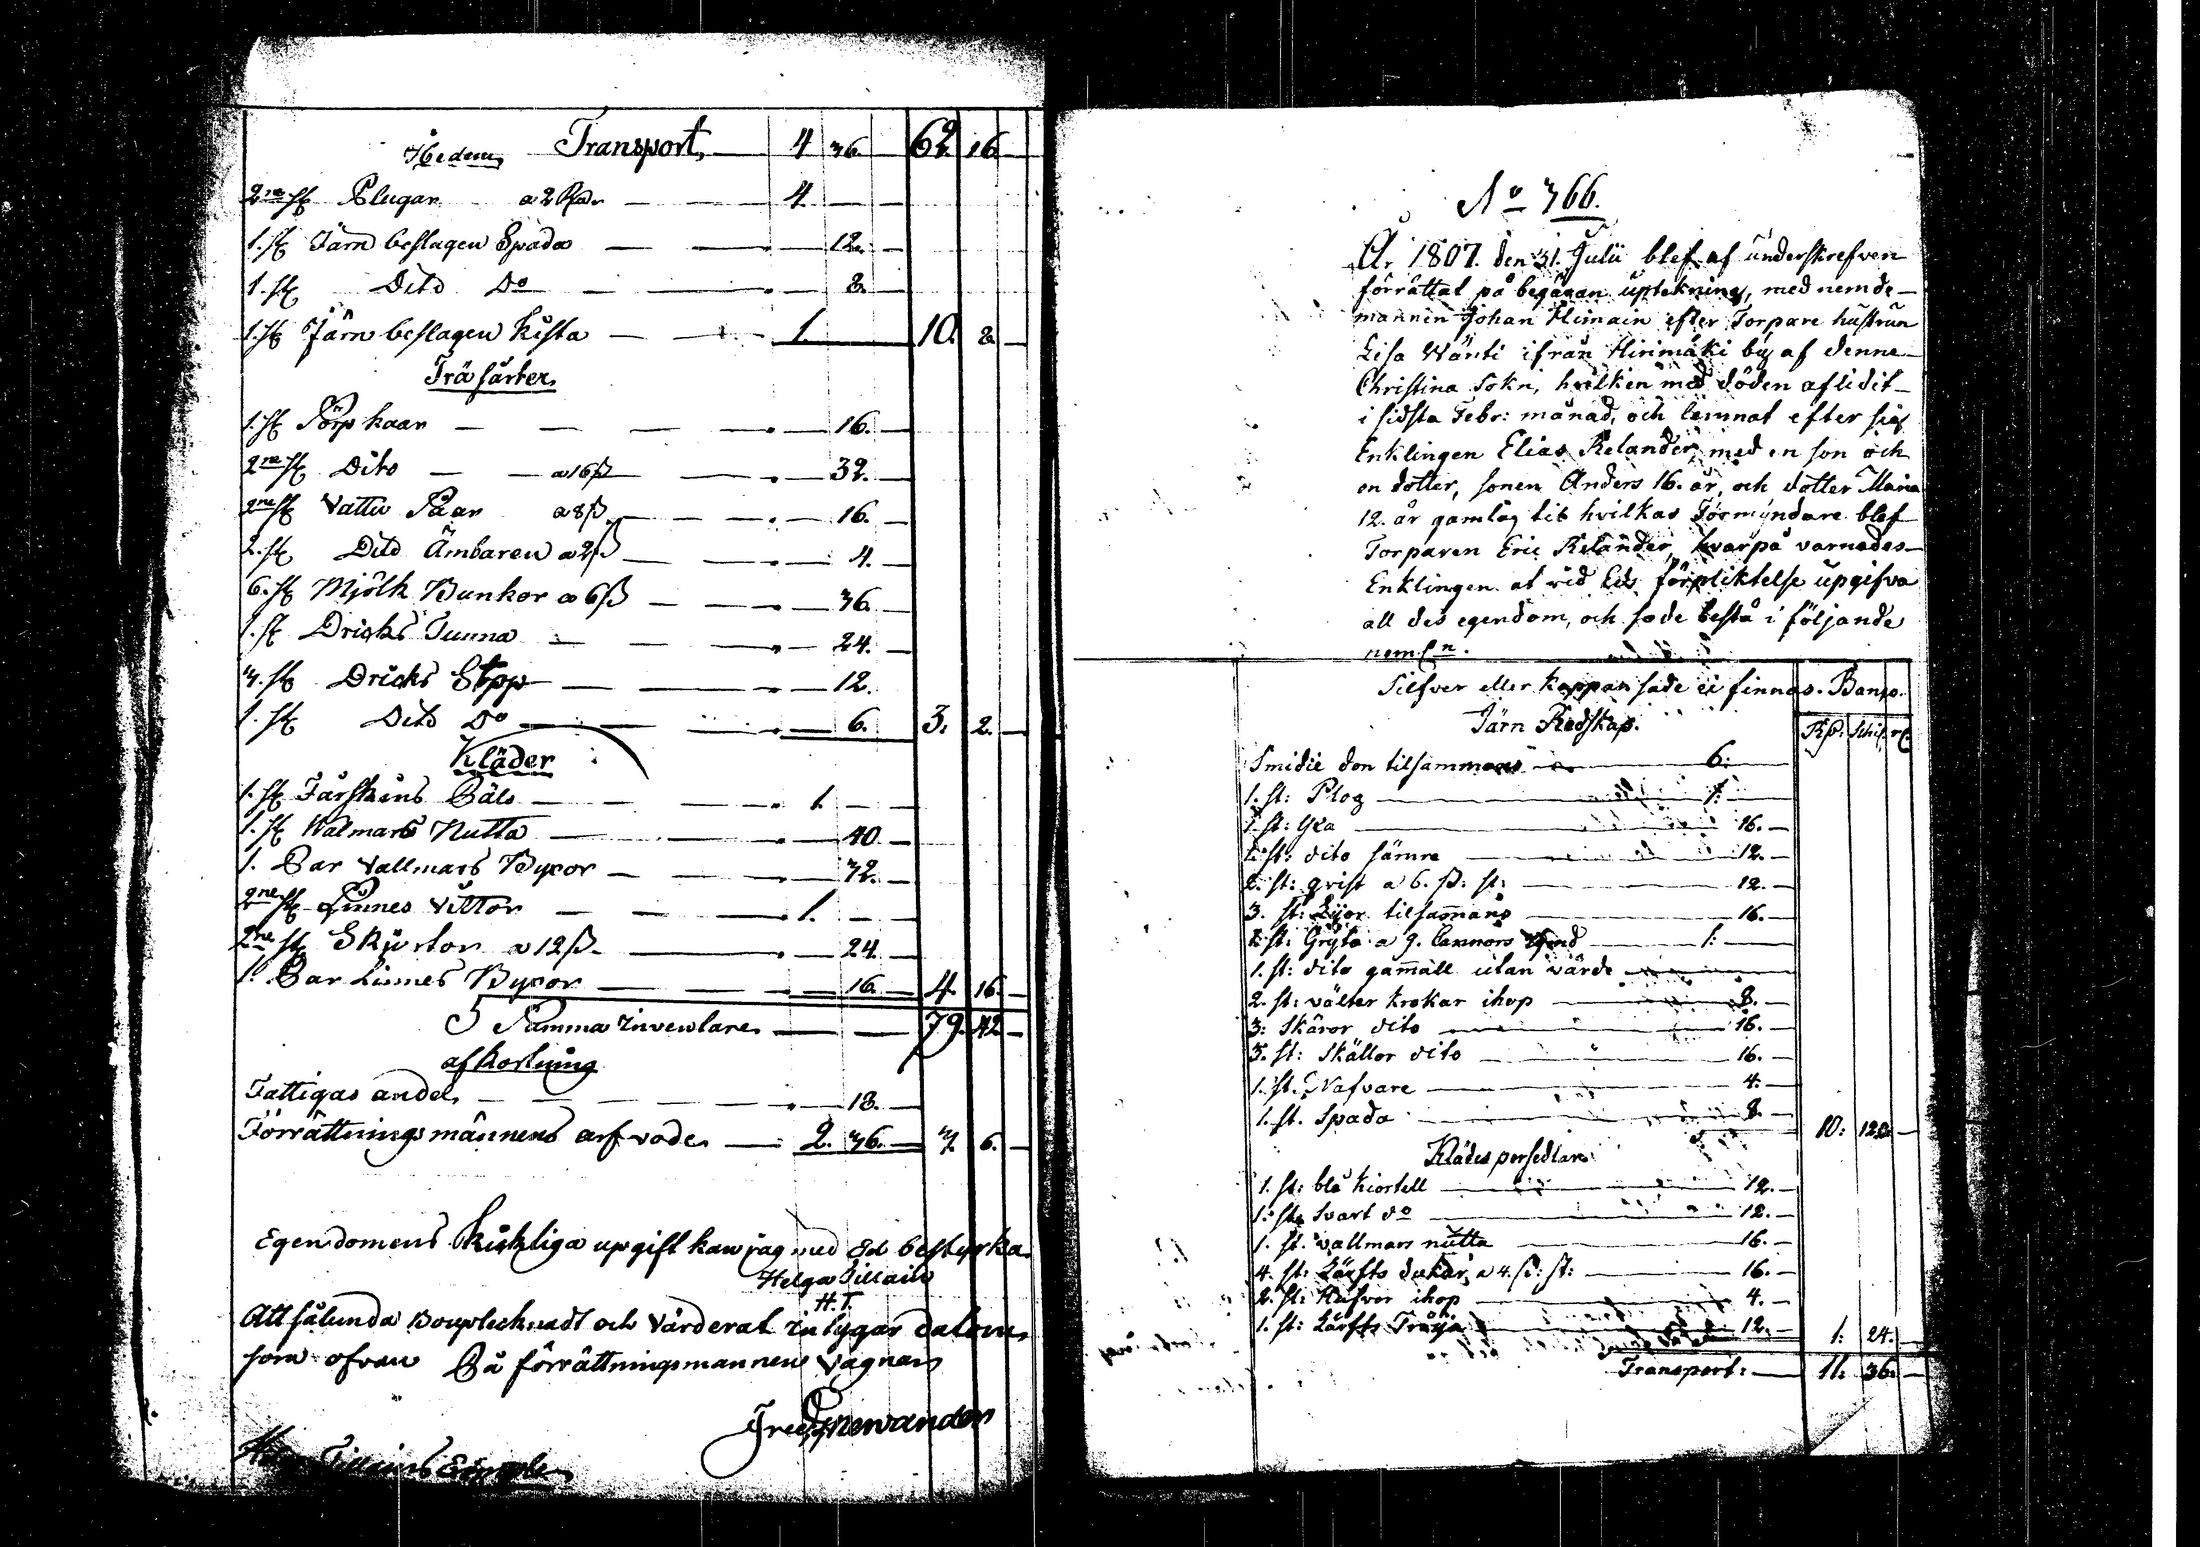 Transport, 4 36. 62. 16
2ne st Plugar a 2 Rdr 4.
1. st Järn beslagen Spada 12.
1. st Dito Do 8.
1. st Järn beslagen Kista 1. 10. 8.
Trä sårter
1. st Törp kaar 16.
2ne st Dito a 16 ß 32.
2ne st Vattu Såar a 8 ß. 16.
2. st Dito Ämbaren a 2 ß 4.
6. st Mjölk Bunkor a 6 ß 36.
1. st Dricks Tunna 24.
3. st Dricks Stop 12.
1. st Dito Do 6. 3. 2.
Kläder
1. st Fårskins Päls 1.
1. st Walmars Nutta 40.
1. Par Vallmars Byxor 32.
2ne st Vittor 1.
2ne st Skjortor a 12 ß. 24
1. Par Linnes Byxor 16. 4. 16.
Summa Inventare 79. 42
afkortning
Fattigas andel 18.
Förrättningsmännens arfvode 2. 36. 3. 6.
Egendomens Richtiga upgift kan jag med Ed bestyrka.
Helga Tillain
H.T.
Att sålunda Bouptecknadt och Värderat intygar datum
som ofvan På förrättningsmannens vägnar
No 366.
År 1807. den 31. Julii blef af underskrefven
förrättat på begäran uptekning, med nemde-
mannen Johan Himain efter Torpare hustrun
Lisa Wänti ifrån Hirimäki by af denne
Christina Sokn, hvilken med döden aflidit
i sidsta Febr: månad, och lemnat efter sig
Enklingen Elias Relander, med en son och
en dotter, sonen Anders 16. år, och dotter Maria
12. år gamla, til hvilkas Förmyndare blef
Torparen Eric Relander, hvarpå varnades
Enklingen at vid Eds förpliktelse upgifva
all des egendom, och sade bestå i följande
neml:n.
Silfver eller Koppar sade ei finnas. Banco.
Järn Redskap. Rd: Schil: r:
Smidie don tilsammans 6:
1. st: Plog 1:
1. st: Yxa 16.
1. st: dito sämre 12.
2. st: grist a 6. ß: st: 12.
3. st: Lijor tilsammans 16.
1. st: Gryta a 9. Cannors 1:
1. st: dito gammall utan värde
2. st: välter krokar ihop 8.
3: Skäror dito 16.
3. st: Skällor dito 16.
1. st. Nafvare 4.
1. st. Spada 8. 10: 12.
Klädes persedlar
1. st: blå kiortell 12.
1. st: Svart do 12.
1. st. vallmars nutta 16.
4. st: Lärfts dukar a 4. ß: st: 16.
2. st: Hufvor ihop 4.
1. st: Lärfts Tröja 12. 1: 24.
Transport: 11. 36.